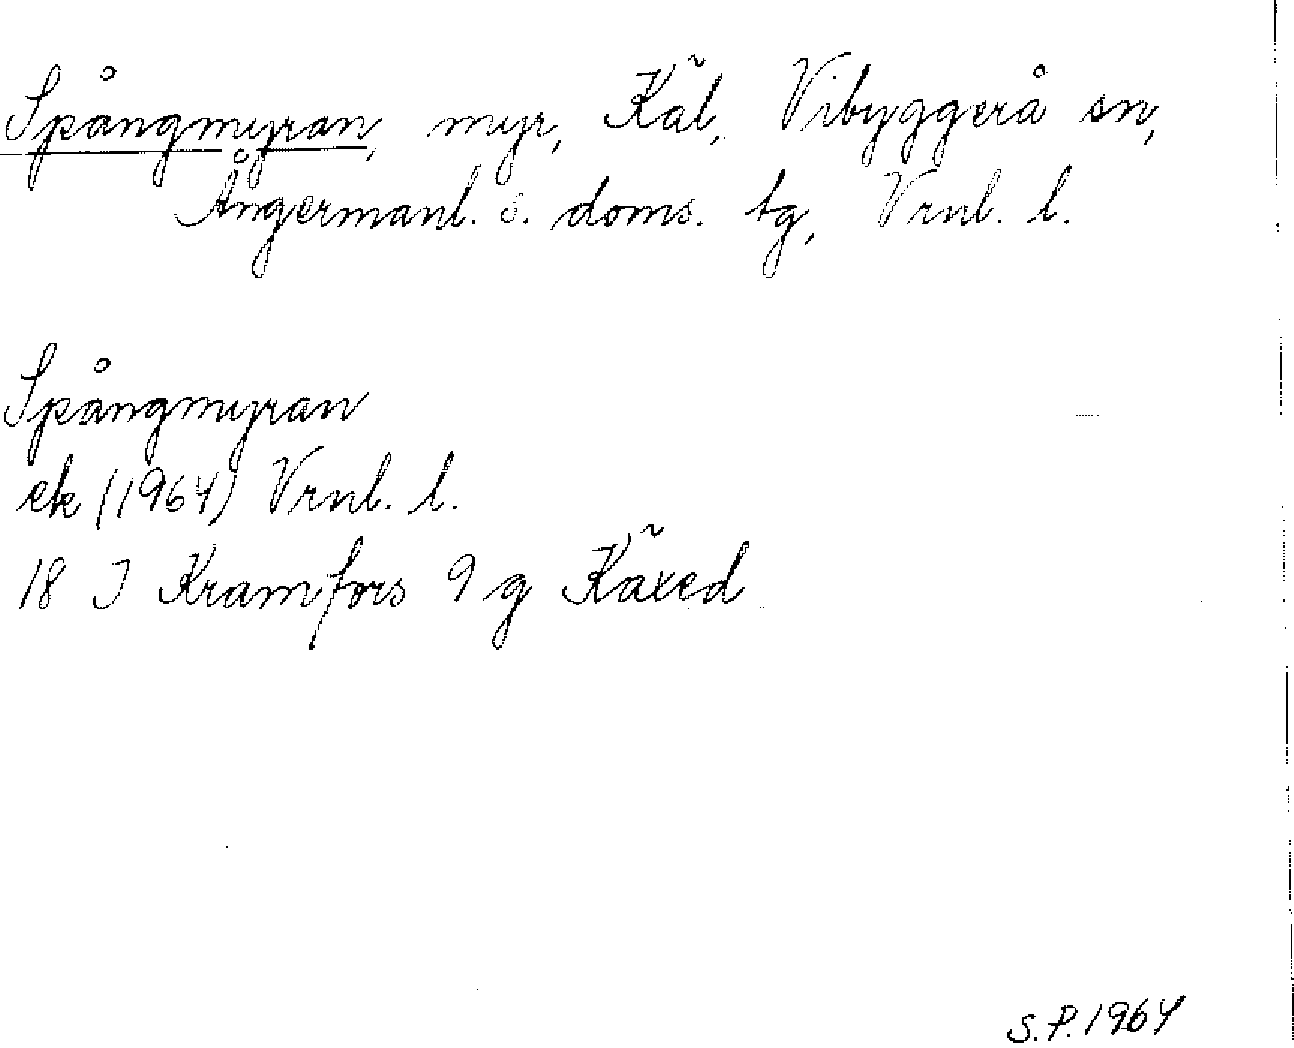 Spångmyran, myr, Käl, Vibyggerå sn,
Ångermanl. s. doms. tg, Vrnl. l.
Spångmyran
ek (1964) Vrnl. l.
18 J Kramfors 9 g Käxed
S.P. 1964